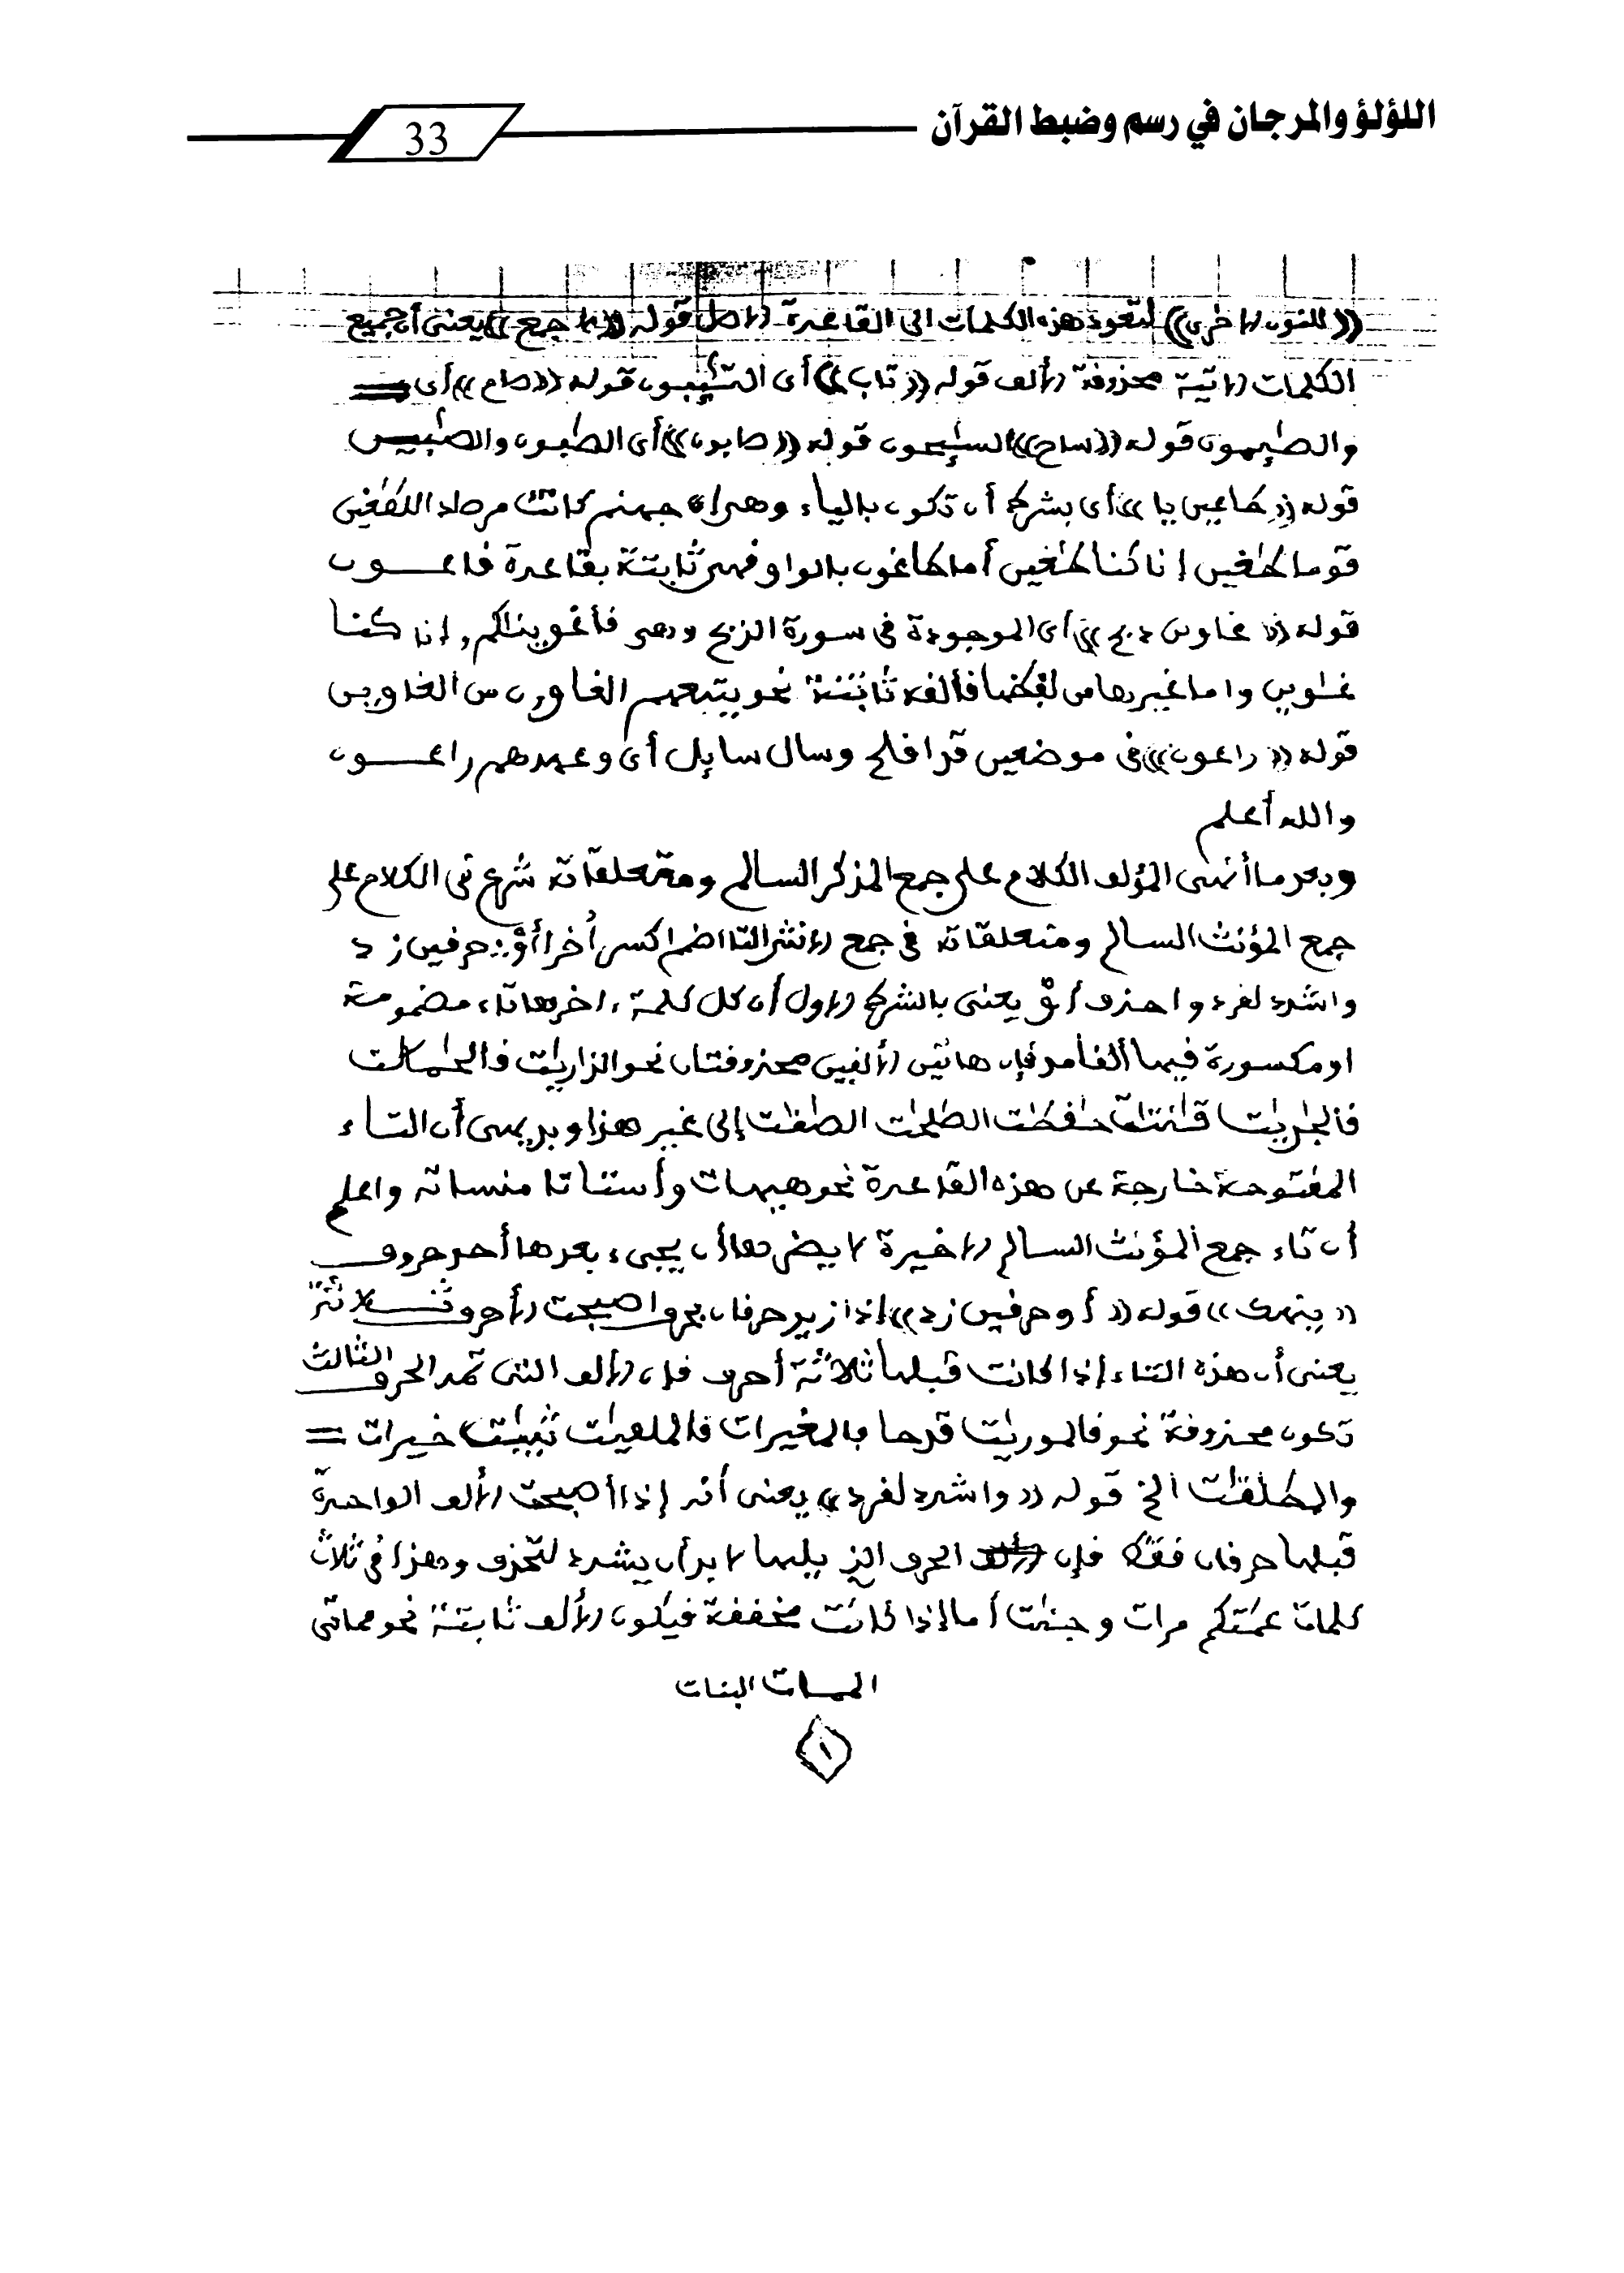 اللؤلؤ والمرجان في رسم وضبط القرآن
33
((للنون الاخرى)) لتعود هذه الكلمات الى القاعدة الاصل قوله ((جمع)) يعنى أن جميع
الكلمات الاتية محذوفة الألف قوله ((تاب)) أى التٰئبون قوله ((صام)) أى
والصٰئمون قوله ((ساح)) السٰئحون قوله ((صابون)) أى الصٰبون والصٰبين
قوله ((طاغين يا)) أى بشرط أن تكون بالياء وهى ان جهنم كانت مرصادا للطٰغين
قوما طٰغين إنا كنا طٰغين أما طاغون بالواو فهى ثابتة بقاعدة فاعون
قوله ((غاوين ذبح)) أى الموجودة فى سورة الذبح وهى فأغوينٰكم, إنا كنا
غٰوين واما غيرها من لفظها فألفه ثابتة نحو يتبعهم الغاون من الغاوين
قوله ((راعون)) فى موضعين قد افلح وسال سايل أى وعهدهم راعون
والله أعلم
وبعد ما أنهى المؤلف الكلام على جمع المذكر السالم ومتعلقاته شرع فى الكلام على
جمع المؤنث السالم ومتعلقاته فى جمع الانثى التا اضمم اكسر أخرا أو: حرفين زد
واشدد لفرد واحذف أو يعنى بالشرط الاول أن كل كلمة ءاخرها تاء مضمومة
او مكسورة فيها ألفا مد فإن هاتين الألفين محذوفتان نحو الذٰريٰت فالحٰملٰت
فالجٰريٰت قٰنتٰت حٰفظٰت الصٰلحٰت الصٰفٰت إلى غير هذا وبديهى أن التاء
المفتوحة خارجة عن هذه القاعدة نحو هيهات وأشتاتا منساته واعلم
أن تاء جمع المؤنث السالم الاخيرة لا يضرها أن يجىء بعدها أحد حروف
((ينهك)) قوله ((أو حرفين زد)) إذا زيد حرفان بحرف اصبحت الأحرف ثلاثة
يعنى أن هذه التاء إذا كانت قبلها ثلاثة أحرف فإن الألف التى تمد الحرف الثالث
تكون محذوفة نحو فالموريٰت قدحا فالمغيرات فالملقيٰت ثيبٰت خيرات =
والمطلقٰت الخ قوله ((واشدد لفرد)) يعنى أنه إذا أصبحت الألف الواحدة
قبلها حرفان فقط فإن الحرف الذ يليها لا بد أن يشدد لتحذف وهذا فى ثلاث
كلمات عمٰتكم مرات وجنٰت أما إذا كانت مخففة فيكون الألف ثابتة نحو مماتى
الممات البنات
١